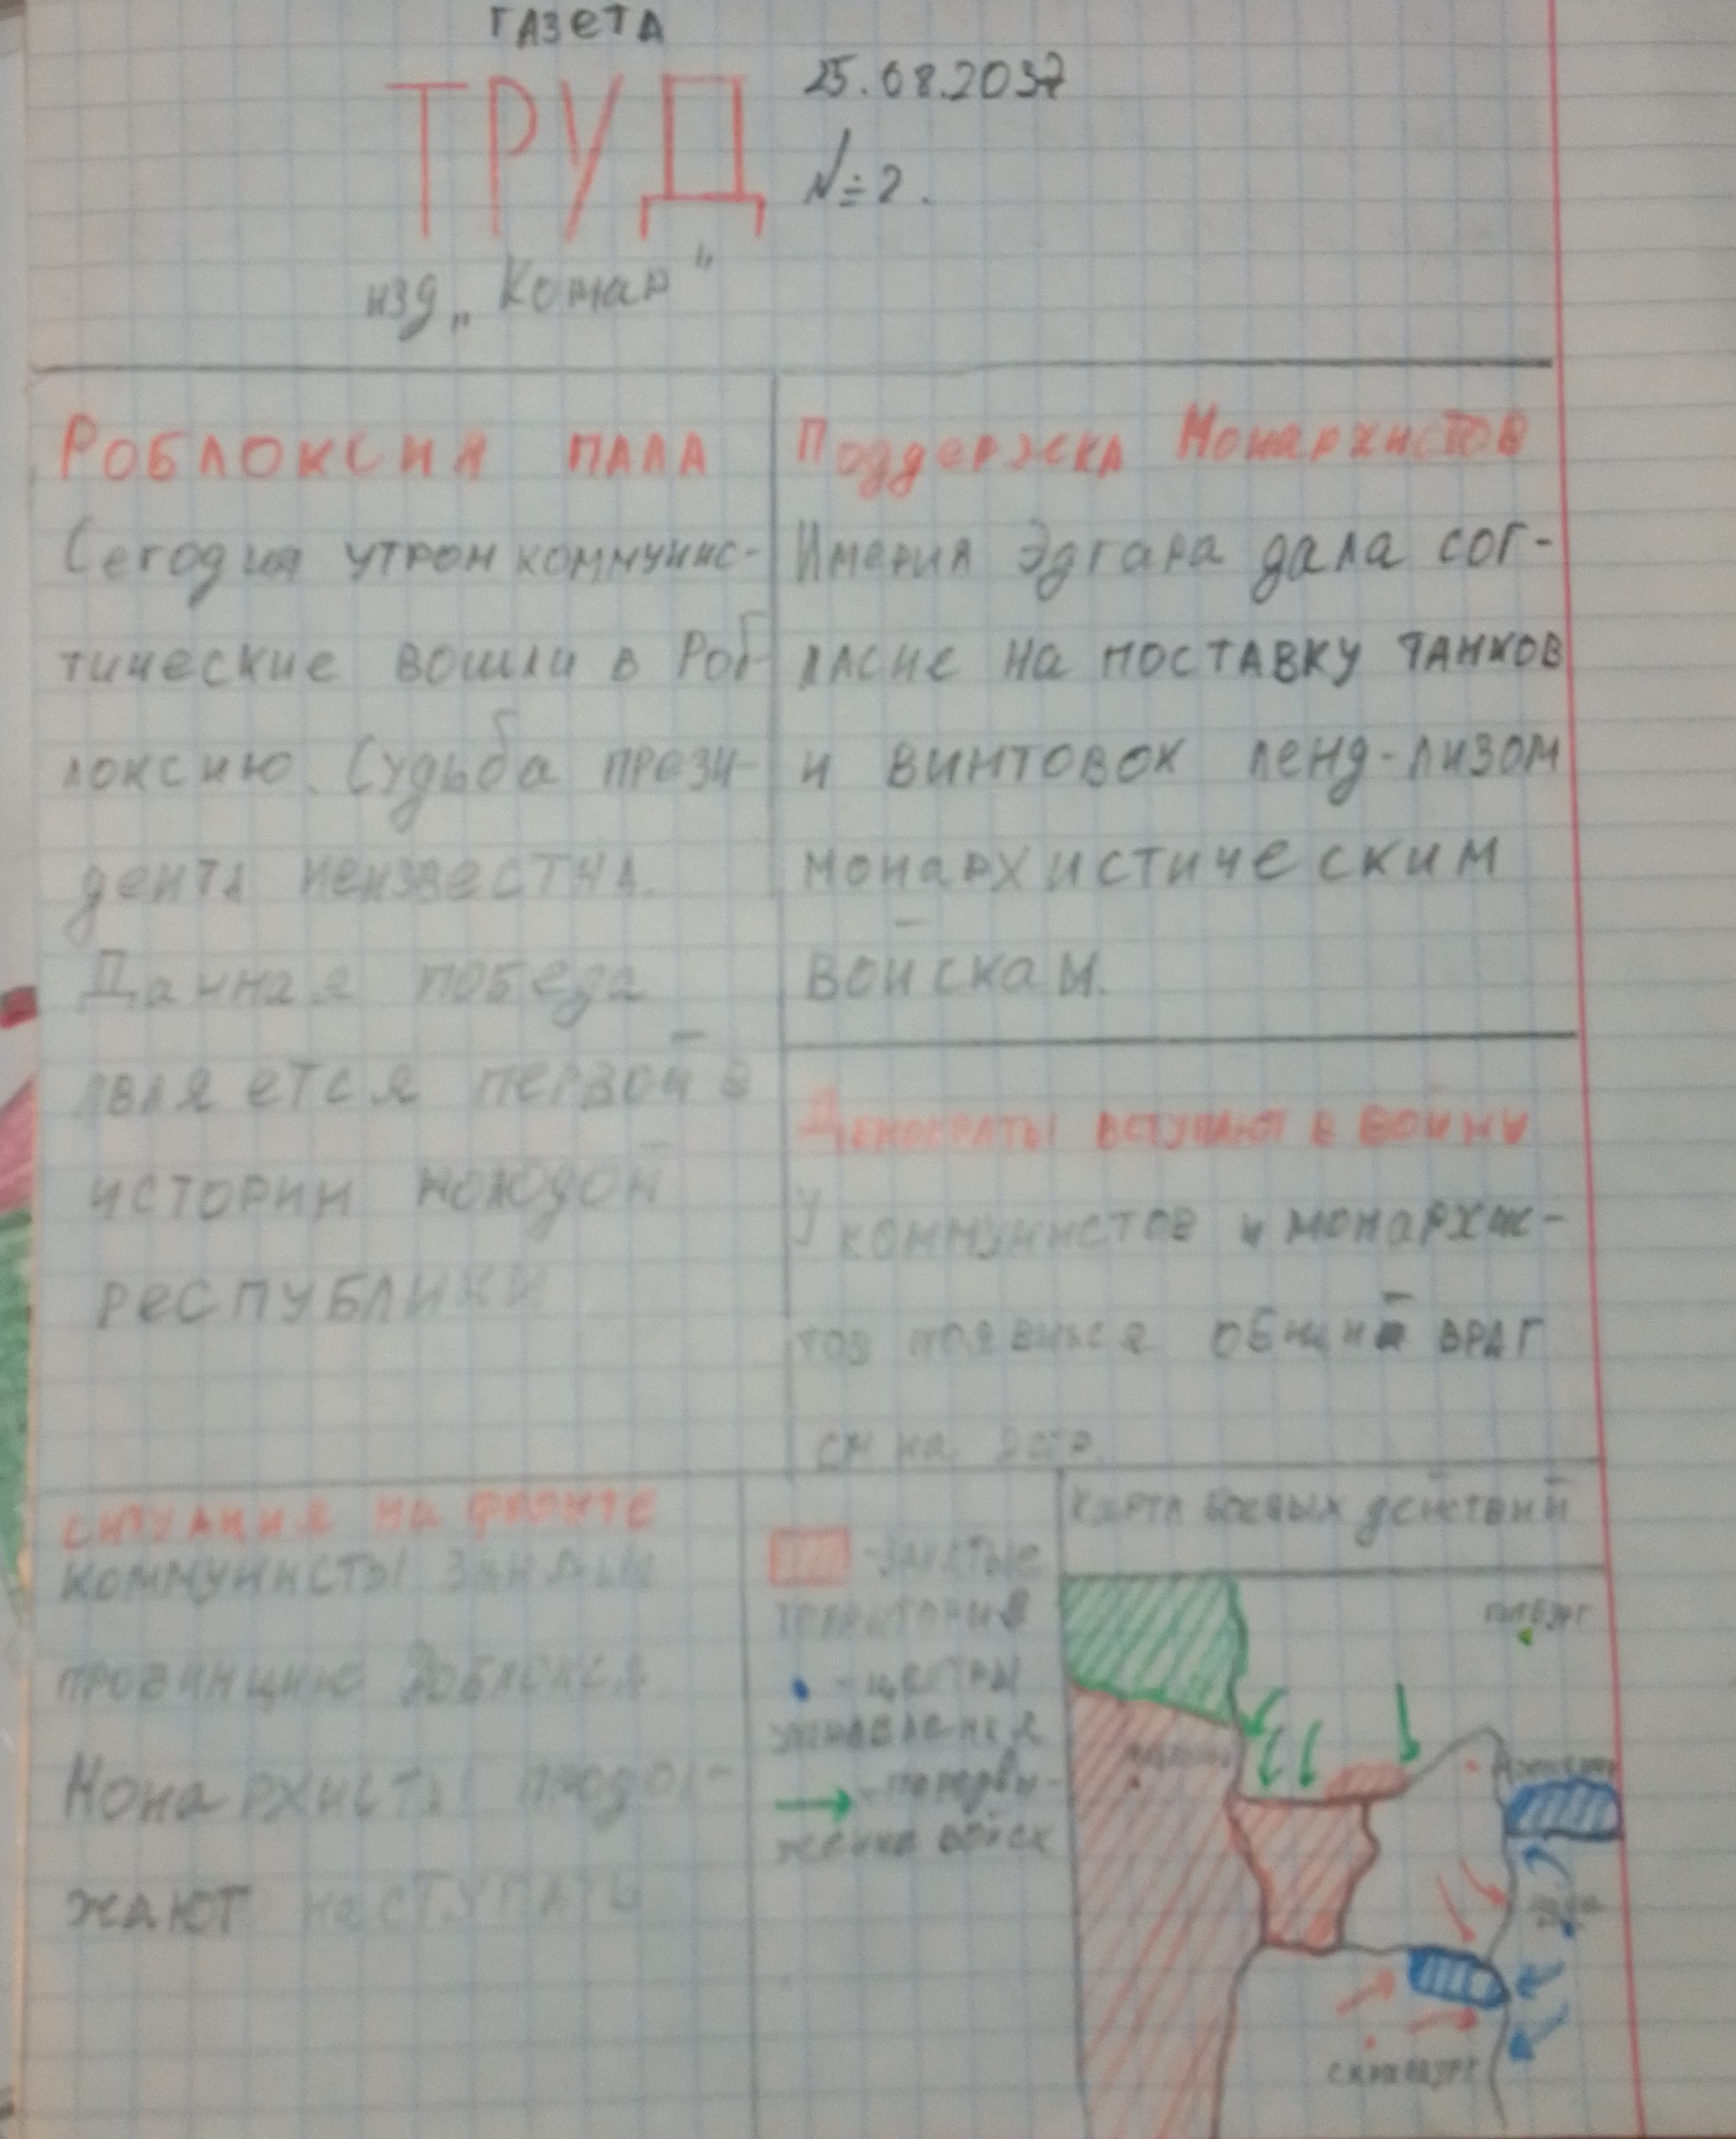 ГАЗЕТА
ТРУД
25.08.2037
№2.
изд „Комар"
РОБЛОКСИЯ ПАЛА
Сегодня утром коммунис-
тические вошли в Роб-
локсию. Судьба прези-
дента неизвестна.
Данная победа
является первой в
истории молодой
республики
Поддержка Монархистов
Имерия Эдгара дала сог-
ласие на поставку танков
и винтовок ленд-лизом
монархистическим
войскам.
Демократы вступают в войну
У коммунистов и монархис-
тов появился общий враг
см на 2стр.
Ситуация на фронте
Коммунисты заняли
провинцию
Монархисты продол-
жают наступать
-занятые
территории
- центры
управления
- передви-
жения войск
Карта боевых действий